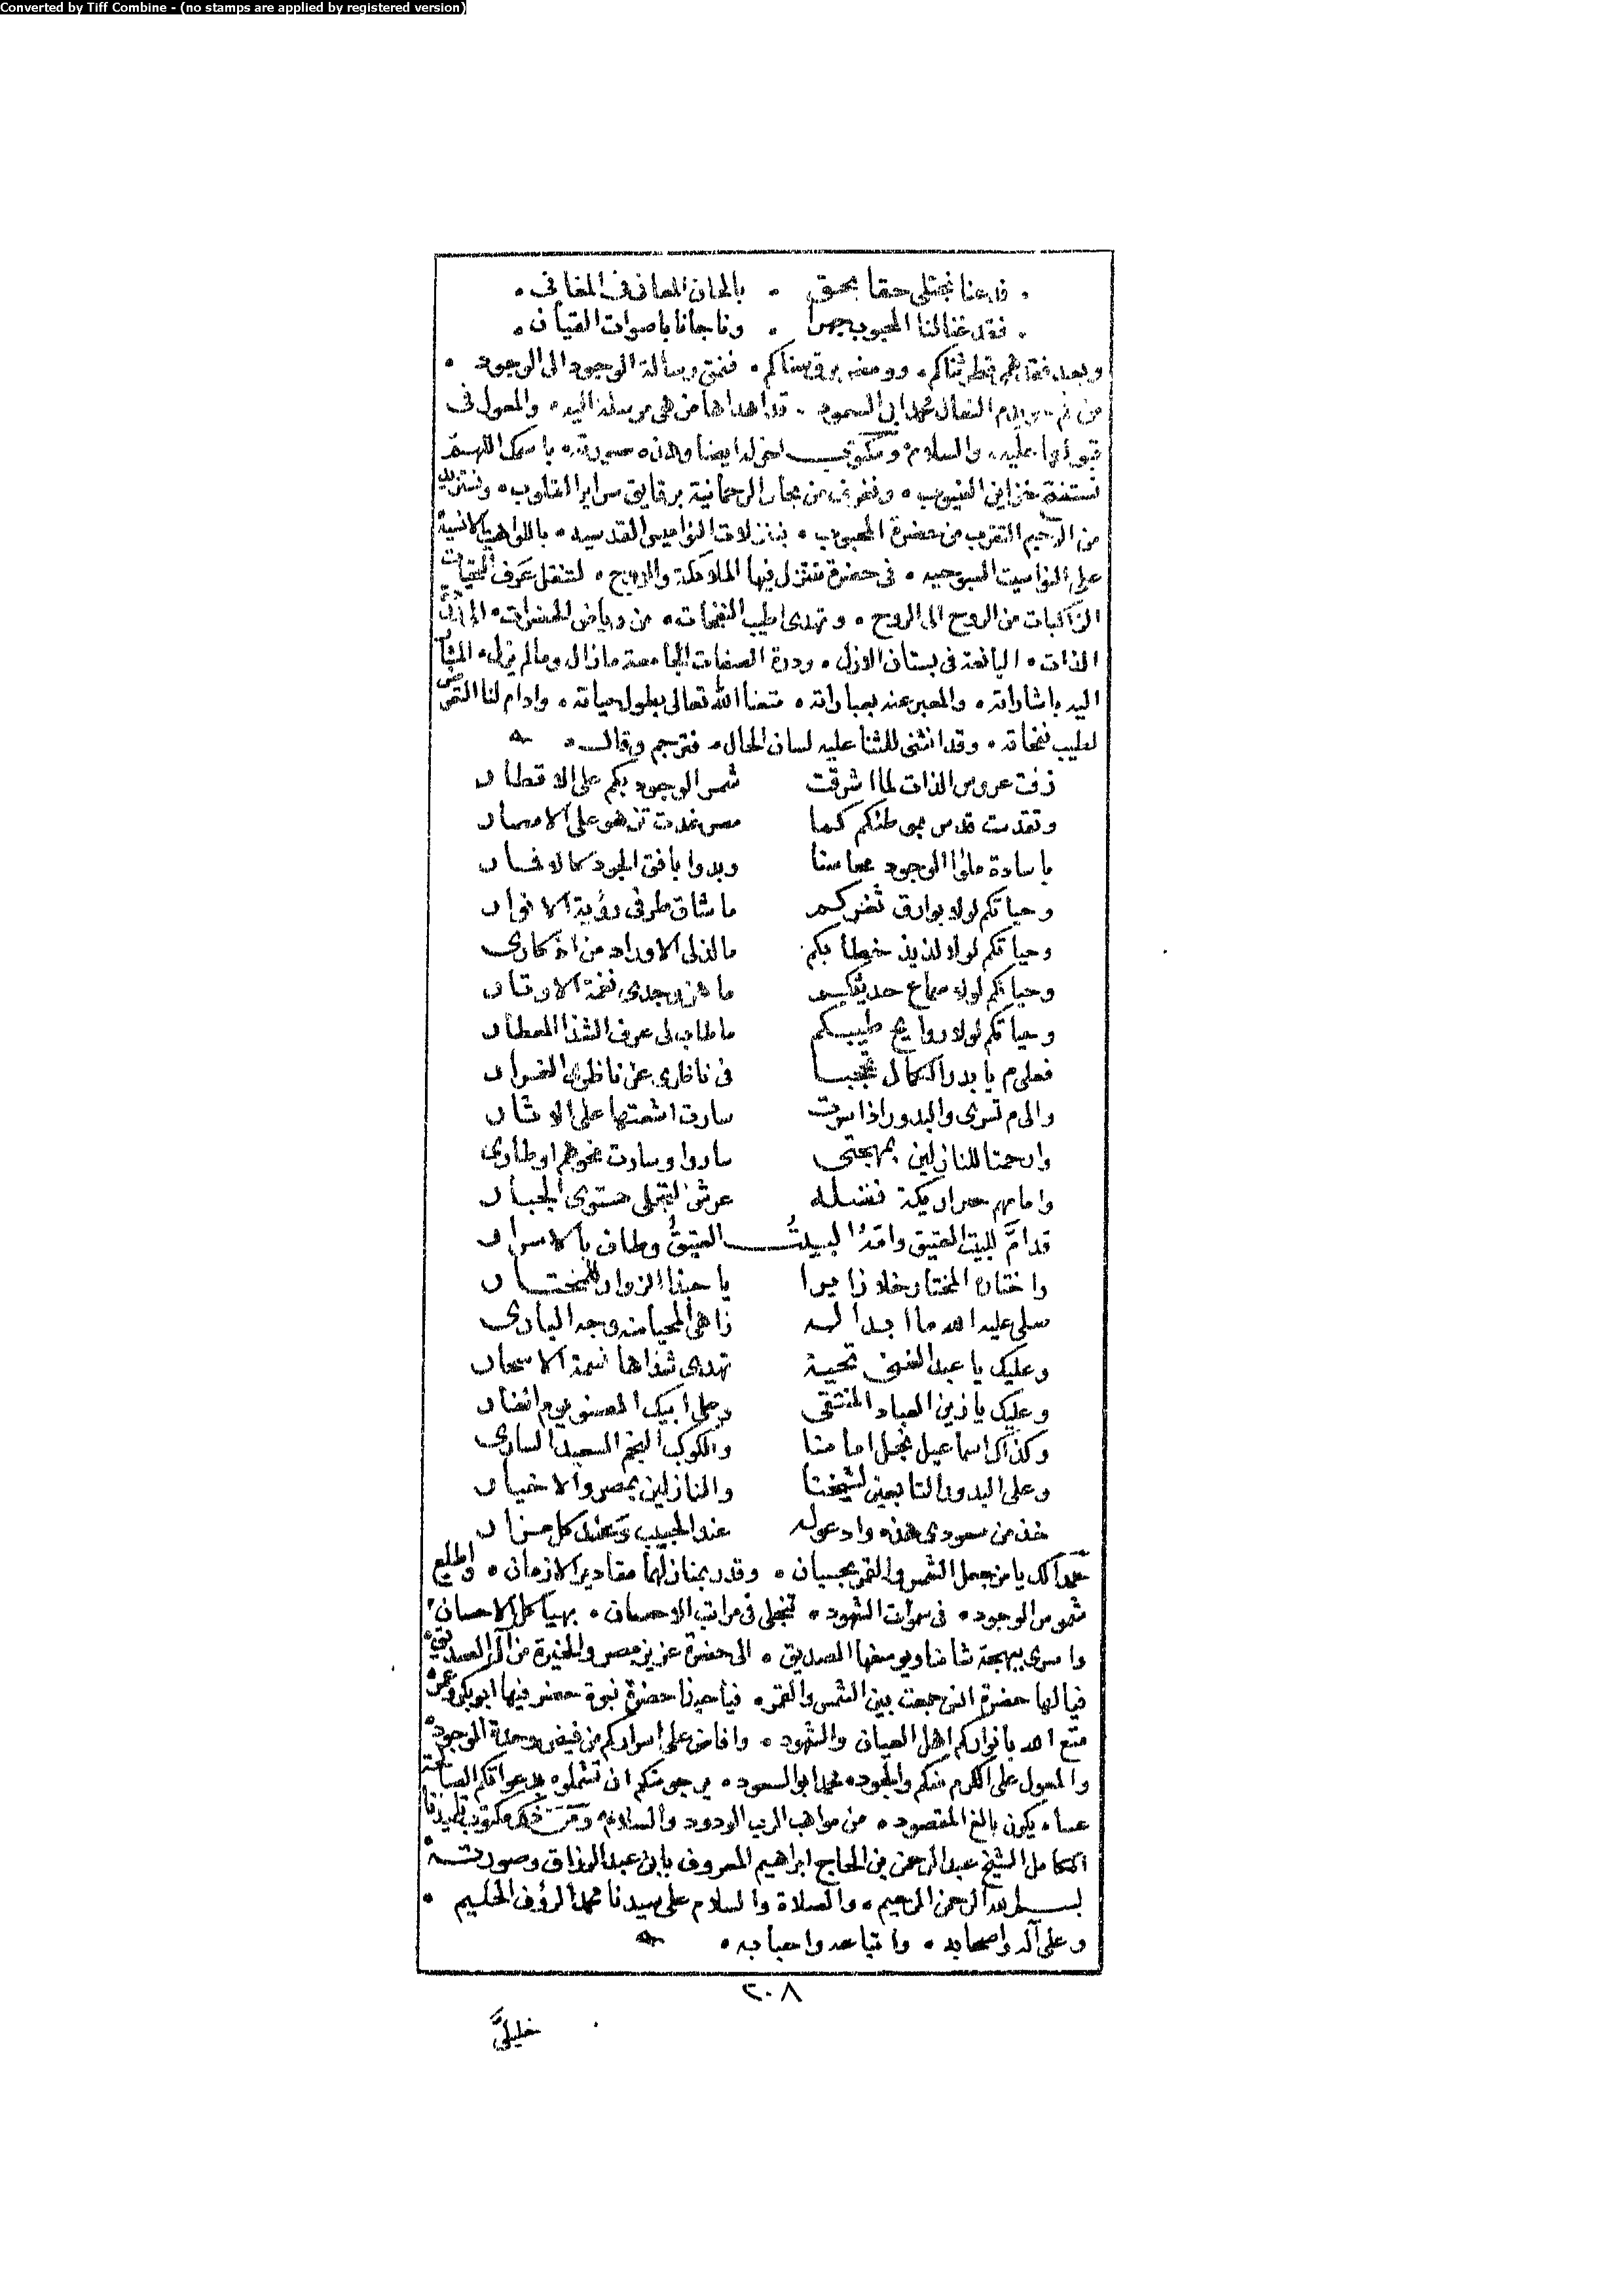 Converted by Tiff Combine - (no stamps are applied by registered version)
فدعنا نجتلي حقا بحق • بالحان المعاني في المغاني •
فقد غنا لنا المحبوب جهرا • وناجانا باصوات القيان •
وبعد فقد قطر ثناكم • وومض برق سناكم • فنمق رسالة الوجود الى الوجود •
من النعال محمد ابي السعود • قد اهداها من هي مرسلة اليه • والمعول في
قبولها عليه • والسلام ومكتوب اخر له ايضا وهذه صورته • باسمك اللهم
نستفتح خزاين الغيوب • ونغترف من بحار الرحمانية برقايق سراير القلوب •
من الرحيم التقرب من حضرة المحبوب • بتنزلات النواميس القدسيه •
على النواسيت السبوحيه • في حضرة تتنزل فيها الملائكة والروح • لتنقل عرف التحيات
الزاكيات من الروح الى الروح • وتهدي اطيب النفحات • من رياض الحضرات •
الذات • اليانعة في بستان الازل • ودرة الصفات الجامعة ما زال وما لم يزل • المشار
اليه باشاراته • والمعبر عنه بعباراته • متعنا الله تعالى بطول حياته • وادام لنا
لطيب نفحاته • وقد انثنى للثنا عليه لسان الحال • فترجم وقال •
زفت عروس الذات لما اشرقت شمس الوجود بكم على الاقطار
وتقدست قدس بموطئكم كما مصر غدت تزهو على الامصار
يا سادة ملؤا الوجود محاسنا وبدوا بافق الجود كالاقمار
وحياتكم لولا بوارق ثغركم ما شاق طرفي رؤية الانوار
وحياتكم لولا لذيذ خطابكم ما لذ لي الاوراد من اذكاري
وحياتكم لولا سماع حديثكم ما هز وجدي نغمة الاوتار
وحياتكم لولا روايح طيبكم ما طاب لي عرف الشذا المعطار
فعلى م يا بدر الكمال تحجبا في ناظري عن ناظري الغرار
والى م تسري والبدور اذا سرت سارت اشعتها على الاثار
وارحمتا للنازلين بمهجتي ساروا وسارت نحوهم اوطاري
وامامهم صدر اريكة فضله عرش التجلي مستوى الجبار
قد امّ للبيت العتيق وامّهُ البيتُ العتيقُ وطاف بالاسرار
واختاره المختار خلا زايرا يا حبذا الزوار للمختار
صلى عليه الله ما ابدا له زاهي المحيا منه وجه الباري
وعليك يا عبد الغني تحية تهدي شذاها نسمة الاسحار
وعليك يا زين العباد المنتقى وعلى ابيك يوم
وكذاك اسماعيل نجل امامنا والكوكب النجم السعيد الساري
وعلى البدور التابعين لشيخنا والنازلين بمصر والاخيار
خذ من سعودي هذه وادعو له عند الحبيب وعند كل مزار
حمدا لك يا من جعل الشمس والقمر بحسبان • وقدر بمنازلهما مقادير الازمان • واطلع
شموس الوجود • في سموات الشهود • تنجلي في مراتب الاحسان • بهياكل الاحسان •
واسرى ببهجة شامنا ويوسفها الصديق • الى حضرة عزيز مصر والخيرة من آل الصديق •
فيا لها حضرة التي جمعت بين الشمس والقمر • فيا حبذا حضرة نبوة حضر فيها ابو بكر وعمر •
متع الله بانواركم اهل العيان والشهود • وافاض على اسراركم من فيض وحدة الوجود •
والمعول على الكرم منكم والجود • محمد ابو السعود • يرجو منكم ان تشملوه بدعواتكم الصالحة
عساه يكون بالغ المقصود • من مواهب الرب الودود والسلام • مكتوب تلميذنا
الكامل الشيخ عبد الرحمن بن الحاج ابراهيم المعروف بابن عبد الرزاق وصورته
بسم الله الرحمن الرحيم • والصلاة والسلام على سيدنا محمد الرؤف الحليم •
وعلى آله واصحابه • واتباعه واحبابه •
٢٠٨
خليليَّ